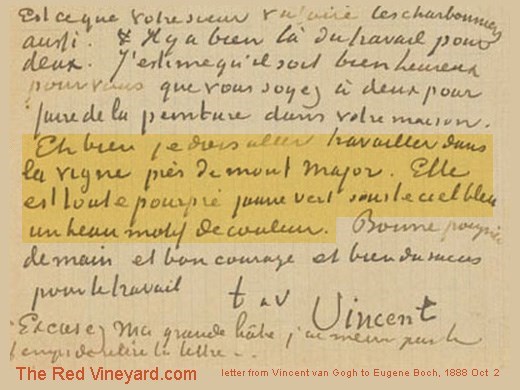 Est ce que votre soeur va voir les charbonniers
aussi. Il y a bien là du travail pour
deux. J'estime qu'il soit bien heureux
pour vous que vous soyez à deux pour
faire de la peinture dans votre maison.
Eh bien je dois aller travailler dans
la vigne près de mont major. Elle
est toute pourpre jaune vert sous le ciel bleu
un beau motif de couleur. Bonne poignée
de main et bon courage et bien du succes
pour le travail
t à v Vincent
Excusez ma grande hâte, j'ai meme pas le
temps de relire la lettre.
The Red Vineyard.com letter from Vincent van Gogh to Eugene Boch, 1888 Oct 2